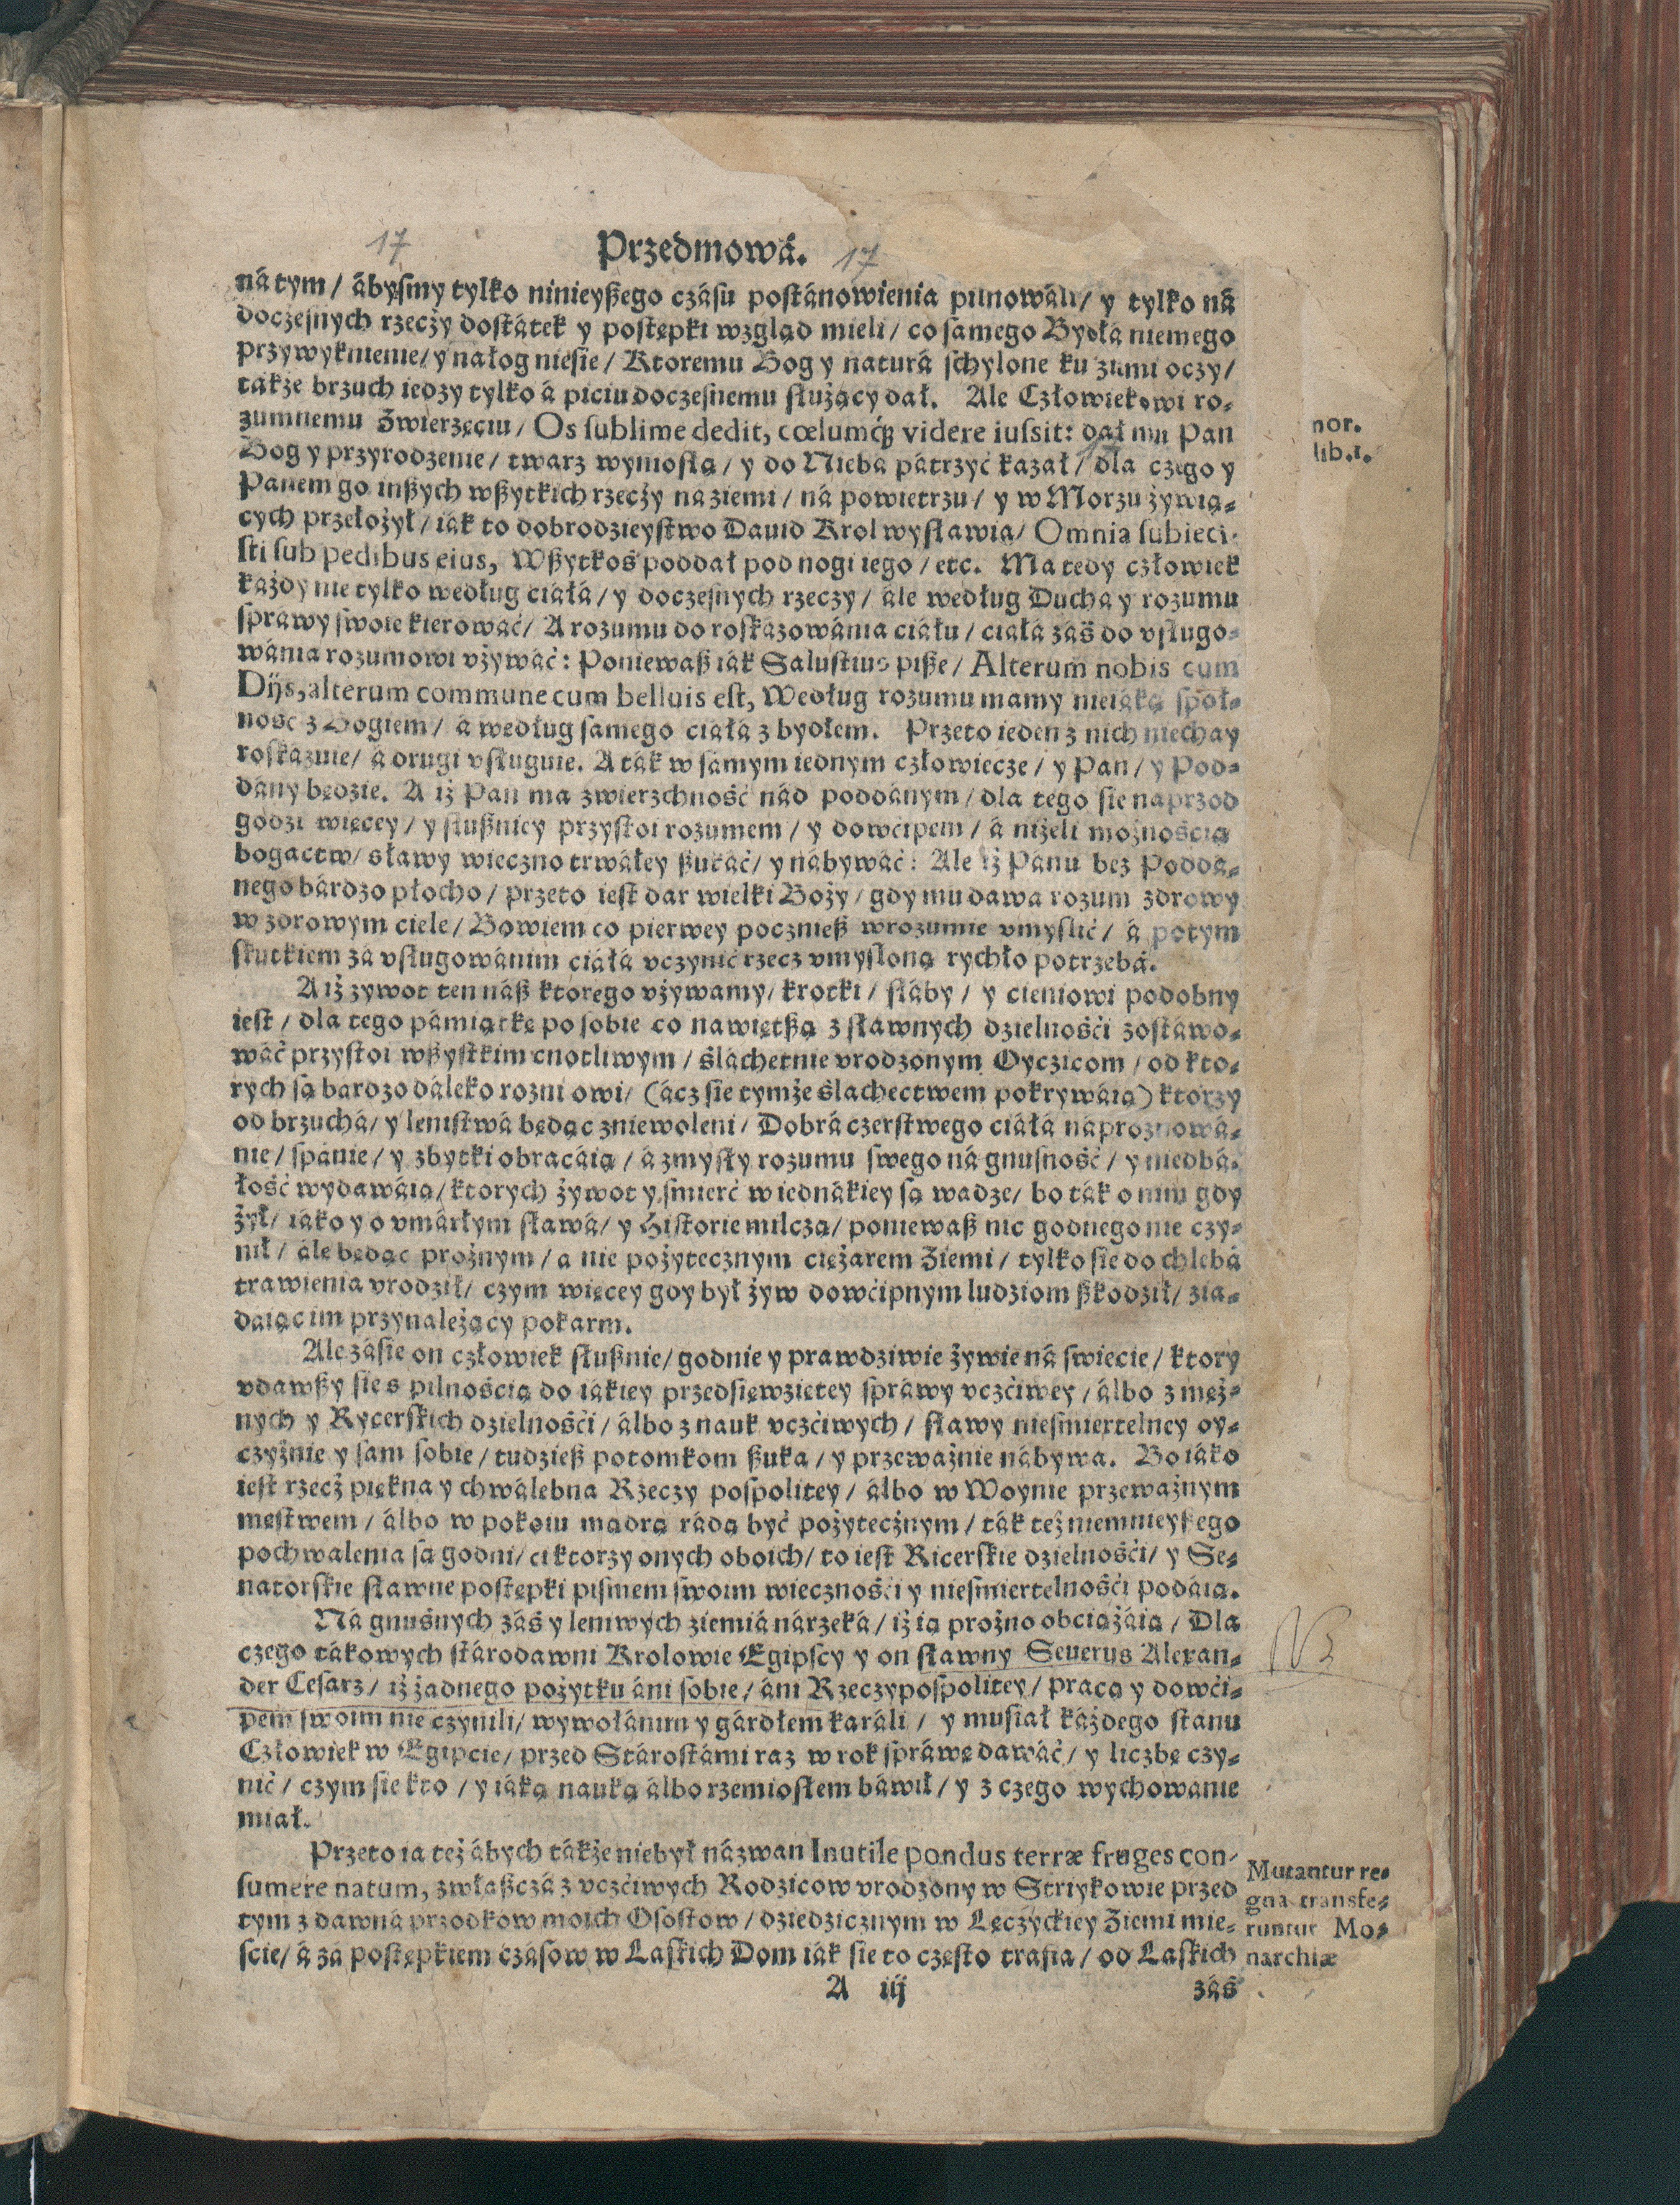 17
Przedmowá.
17
ná tym / ábysmy tylko ninieyßego czásu postánowienia pilnowáli / y tylko ná
doczesnych rzeczy dostátek y postępki wzgląd mieli / co samego Bydłá niemego
przywyknienie / y nałog niesie / Ktoremu Bog y naturá schylone ku ziimi oczy /
tákże brzuch iedzy tylko á piciu doczesnemu służący dał. Ale Człowiekowi ro-
zumnemu Zwierzęciu / Os sublime dedit, cœlumq́ue videre iussit: dał mu Pan
Bog y przyrodzenie / twarz wyniosłą / y do Niebá pátrzyć kazał / dla czego y
Panem go inßych wßytkich rzeczy na ziemi / ná powietrzu / y w Morzu żywią-
cych przełożył / iák to dobrodzieystwo Dauid Krol wysławia / Omnia subieci-
sti sub pedibus eius, Wßytkoś poddał pod nogi iego / etc. Ma tedy człowiek
każdy nie tylko według ciáłá / y doczesnych rzeczy / ále według Ducha y rozumu
spráwy swoie kierowáć / A rozumu do roskázowánia ciáłu / ciáłá záś do vsługo-
wánia rozumowi vżywáć: Poniewaß iák Salustius piße / Alterum nobis cum
Dijs, alterum commune cum belluis est, Według rozumu mamy nieiáką społ-
ność z Bogiem / á według samego ciáłá z bydłem. Przeto ieden z nich niechay
roskázuie / á drugi vsługuie. A ták w sámym iednym człowiecze / y Pan / y Pod-
dány będzie. A iż Pan ma zwierzchność nád poddánym / dla tego sie naprzod
godzi więcey / y słußniey przystoi rozumem / y dowcipem / á niżeli możnością
bogactw / sławy wieczno trwáłey ßukáć / y nábywáć: Ale iż Pánu bez Poddá-
nego bárdzo płocho / przeto iest dar wielki Boży / gdy mu dawa rozum zdrowy
w zdrowym ciele / Bowiem co pierwey poczniesz w rozumie vmyslić / á potym
skutkiem zá vsługowánim ciáłá vczynić rzecz vmysloną rychło potrzebá.
A iż zywot ten náß ktorego vżywamy / krotki / słáby / y cieniowi podobny
iest / dla tego pámiątkę po sobie co nawiętßą z sławnych dzielnośći zostáwo-
wáć przystoi wßystkim cnotliwym / śláchetnie vrodzonym Oyczicom / od kto-
rych są bardzo dáleko rozni owi / (ácz sie tymże śláchectwem pokrywáią) ktorzy
od brzuchá / y lenistwá będąc zniewoleni / Dobrá czerstwego ciáłá ná proznowá-
nie / spánie / y zbytki obracáią / á zmysły rozumu swego ná gnusność / y niedbá-
łość wydawáią / ktorych żywot y śmierć w iednákiey są wadze / bo ták o nim gdy
żył / iáko y o vmárłym sławá / y Historie milczą / poniewaß nic godnego nie czy-
nił / ále będąc prożnym / a nie pożytecznym ciężarem Ziemi / tylko sie do chlebá
trawienia vrodził / czym więcey gdy był żyw dowćipnym ludziom ßkodził / zia-
dáiąc im przynależący pokarm.
Ale zásie on człowiek słußnie / godnie y prawdziwie żywie ná świecie / ktory
vdawßy sie s pilnością do iákiey przedsięwziętey spráwy vczćiwey / álbo z męż-
nych y Rycerskich dzielnośći / álbo z nauk vczćiwych / sławy nieśmiertelney oy-
czyźnie y sam sobie / tudzieß potomkom ßuka / y przeważnie nábywa. Bo iáko
iest rzecż piękna y chwálebna Rzeczy pospolitey / álbo w Woynie przeważnym
męstwem / álbo w pokoiu mądrą rádą być pożytecżnym / ták też niemnieyßego
pochwalenia są godni / ci ktorzy onych oboich / to iest Ricerskie dzielnośći / y Se-
natorskie sławne postępki pismem swoim wiecznośći y nieśmiertelnośći podáią.
Ná gnuśnych záś y leniwych ziemiá nárzeká / iż ią prożno obciążáią / Dla
czego tákowych stárodawni Krolowie Egipscy y on sławny Seuerus Alexan-
der Cesarz / iż żadnego pożytku áni sobie / áni Rzeczypospolitey / pracą y dowći-
pem swoim nie czynili / wywołánim y gárdłem karáli / y musiał káżdego stanu
Człowiek w Egipcie / przed Stárostámi raz w rok spráwę dawáć / y liczbę czy-
nić / czym sie kto / y iáką nauką álbo rzemiosłem báwił / y z czego wychowanie
miał.
Przeto ia też ábych tákże niebył názwan Inutile pondus terræ fruges con-
sumere natum, zwłaßczá z vczćiwych Rodzicow vrodzony w Striykowie przed
tym z dawná przodkow moich Osostow / dziedzicznym w Łęczyckiey Ziemi mie-
scie / á zá postępkiem czásow w Łaskich Dom iák sie to często trafia / od Łaskich
A iij
záś
nor.
lib.1.
Mutantur re-
gna transfe-
runtur Mo-
narchiæ